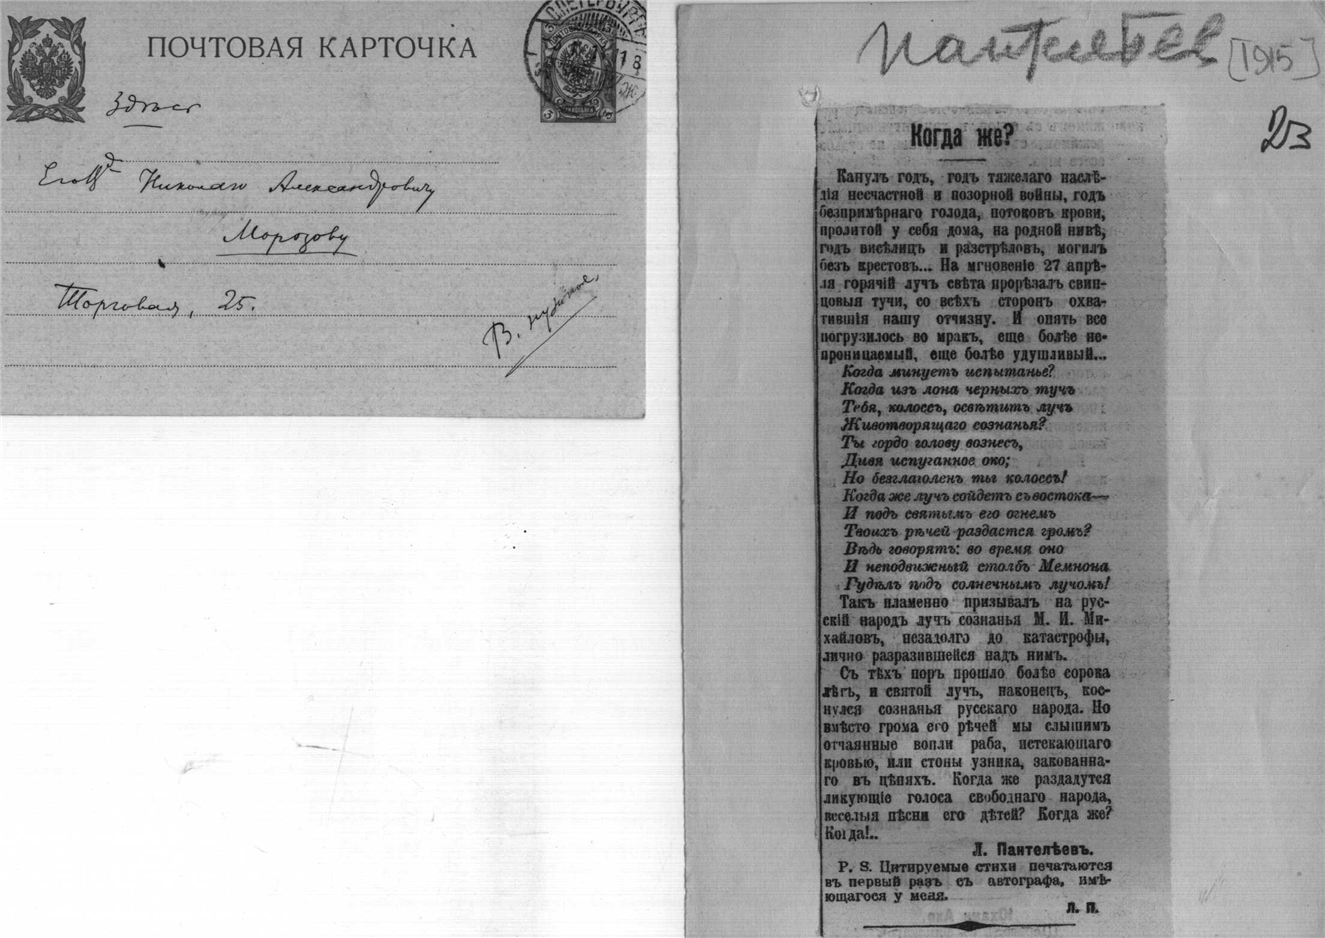 ПОЧТОВАЯ КАРТОЧКА
С.ПЕТЕРБУРГЪ
Здѣсь
ЕгоВд
Николаю Александровичу
Морозову
Торговая, 25.
В. нужное
Пантелѣев [1915]
23
Когда же?
Канулъ годъ, годъ тяжелаго наслѣ-
дія несчастной и позорной войны, годъ
безпримѣрнаго голода, потоковъ крови,
пролитой у себя дома, на родной нивѣ,
годъ висѣлицъ и разстрѣловъ, могилъ
безъ крестовъ... На мгновеніе 27 апрѣ-
ля горячій лучъ свѣта прорѣзалъ свин-
цовыя тучи, со всѣхъ сторонъ охва-
тившія нашу отчизну. И опять все
погрузилось во мракъ, еще болѣе не-
проницаемый, еще болѣе удушливый...
Когда минуетъ испытанье?
Когда изъ лона черныхъ тучъ
Тебя, колоссъ, освѣтитъ лучъ
Животворящаго сознанья?
Ты гордо голову вознесъ,
Дивя испуганное око;
Но безглаголенъ ты колоссъ!
Когда же лучъ сойдетъ съ востока—
И подъ святымъ его огнемъ
Твоихъ рѣчей раздастся громъ?
Вѣдь говорятъ: во время оно
И неподвижный столбъ Мемнона
Гудѣлъ подъ солнечнымъ лучомъ!
Такъ пламенно призывалъ на рус-
скій народъ лучъ сознанья М. И. Ми-
хайловъ, незадолго до катастрофы,
лично разразившейся надъ нимъ.
Съ тѣхъ поръ прошло болѣе сорока
лѣтъ, и святой лучъ, наконецъ, кос-
нулся сознанья русскаго народа. Но
вмѣсто грома его рѣчей мы слышимъ
отчаянные вопли раба, истекающаго
кровью, или стоны узника, закованна-
го въ цѣпяхъ. Когда же раздадутся
ликующіе голоса свободнаго народа,
веселыя пѣсни его дѣтей? Когда же?
Когда!..
Л. Пантелѣевъ.
P. S. Цитируемые стихи печатаются
въ первый разъ съ автографа, имѣ-
ющагося у меня.
Л. П.